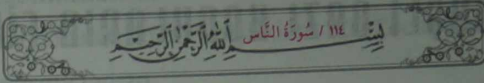 ١١٤ / سُورَةُ النَّاس
بِسْمِ اللَّهِ الرَّحْمَٰنِ الرَّحِيمِ